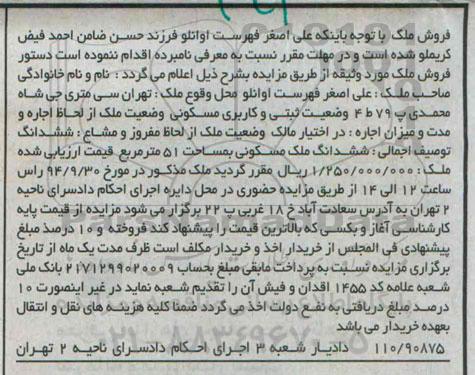 فروش ملک با توجه باینکه علی اصغر فهرست اوانلو فرزند حسن ضامن احمد فیض
کریملو شده است و در مهلت مقرر نسبت به معرفی نامبرده اقدام ننموده است دستور
فروش ملک مورد وثیقه از طریق مزایده بشرح ذیل اعلام می گردد : نام و نام خانوادگی
صاحب ملک : علی اصغر فهرست اوانلو محل وقوع ملک : تهران سی متری جی شاه
محمدی پ ۷۹ ط ۴ وضعیت ثبتی و کاربری مسکونی وضعیت ملک از لحاظ اجاره و
مدت و میزان اجاره : در اختیار مالک وضعیت ملک از لحاظ مفروز و مشاع : ششدانگ
توصیف اجمالی : ششدانگ ملک مسکونی بمساحت ۵۱ مترمربع قیمت ارزیابی شده
ملک : ۱/۲۵۰/۰۰۰/۰۰۰ ریال مقرر گردید ملک مذکور در مورخ ۹۴/۹/۳۰ راس
ساعت ۱۲ الی ۱۴ از طریق مزایده حضوری در محل دایره اجرای احکام دادسرای ناحیه
۲ تهران به آدرس سعادت آباد خ ۱۸ غربی پ ۲۲ برگزار می شود مزایده از قیمت پایه
کارشناسی آغاز و بکسی که بالاترین قیمت را پیشنهاد کند فروخته و ۱۰ درصد مبلغ
پیشنهادی فی المجلس از خریدار اخذ و خریدار مکلف است ظرف مدت یک ماه از تاریخ
برگزاری مزایده نسبت به پرداخت مابقی مبلغ بحساب ۲۱۷۱۲۹۹۰۲۰۰۰۹ بانک ملی
شعبه علامه کد ۱۴۵۵ اقدان و فیش آن را تقدیم شعبه نماید در غیر اینصورت ۱۰
درصد مبلغ دریافتی به نفع دولت اخذ می گردد ضمنا کلیه هزینه های نقل و انتقال
بعهده خریدار می باشد
۱۱۰/۹۰۸۷۵ دادیار شعبه ۳ اجرای احکام دادسرای ناحیه ۲ تهران